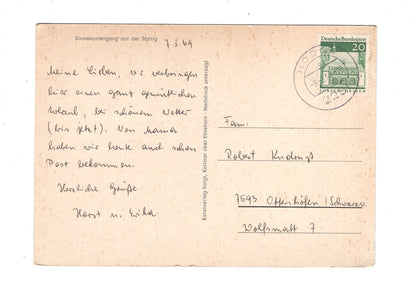 Sonnenuntergang auf der Hallig
7.8.69
Deutsche Bundespost
20
Meine Lieben, wir verbringen
hier einen ganz gemütlichen
Urlaub, bei schönem Wetter
(bis jetzt). Von Mama
haben wir heute auch schon
Post bekommen.
Herzliche Grüße
Horst u. Erika
Kunstverlag Voigt, Kolmar über Elmshorn · Nachdruck untersagt
Fam.
Robert
7593 Ottenhöfen/Schwarzw.
Wolfsmatt 7